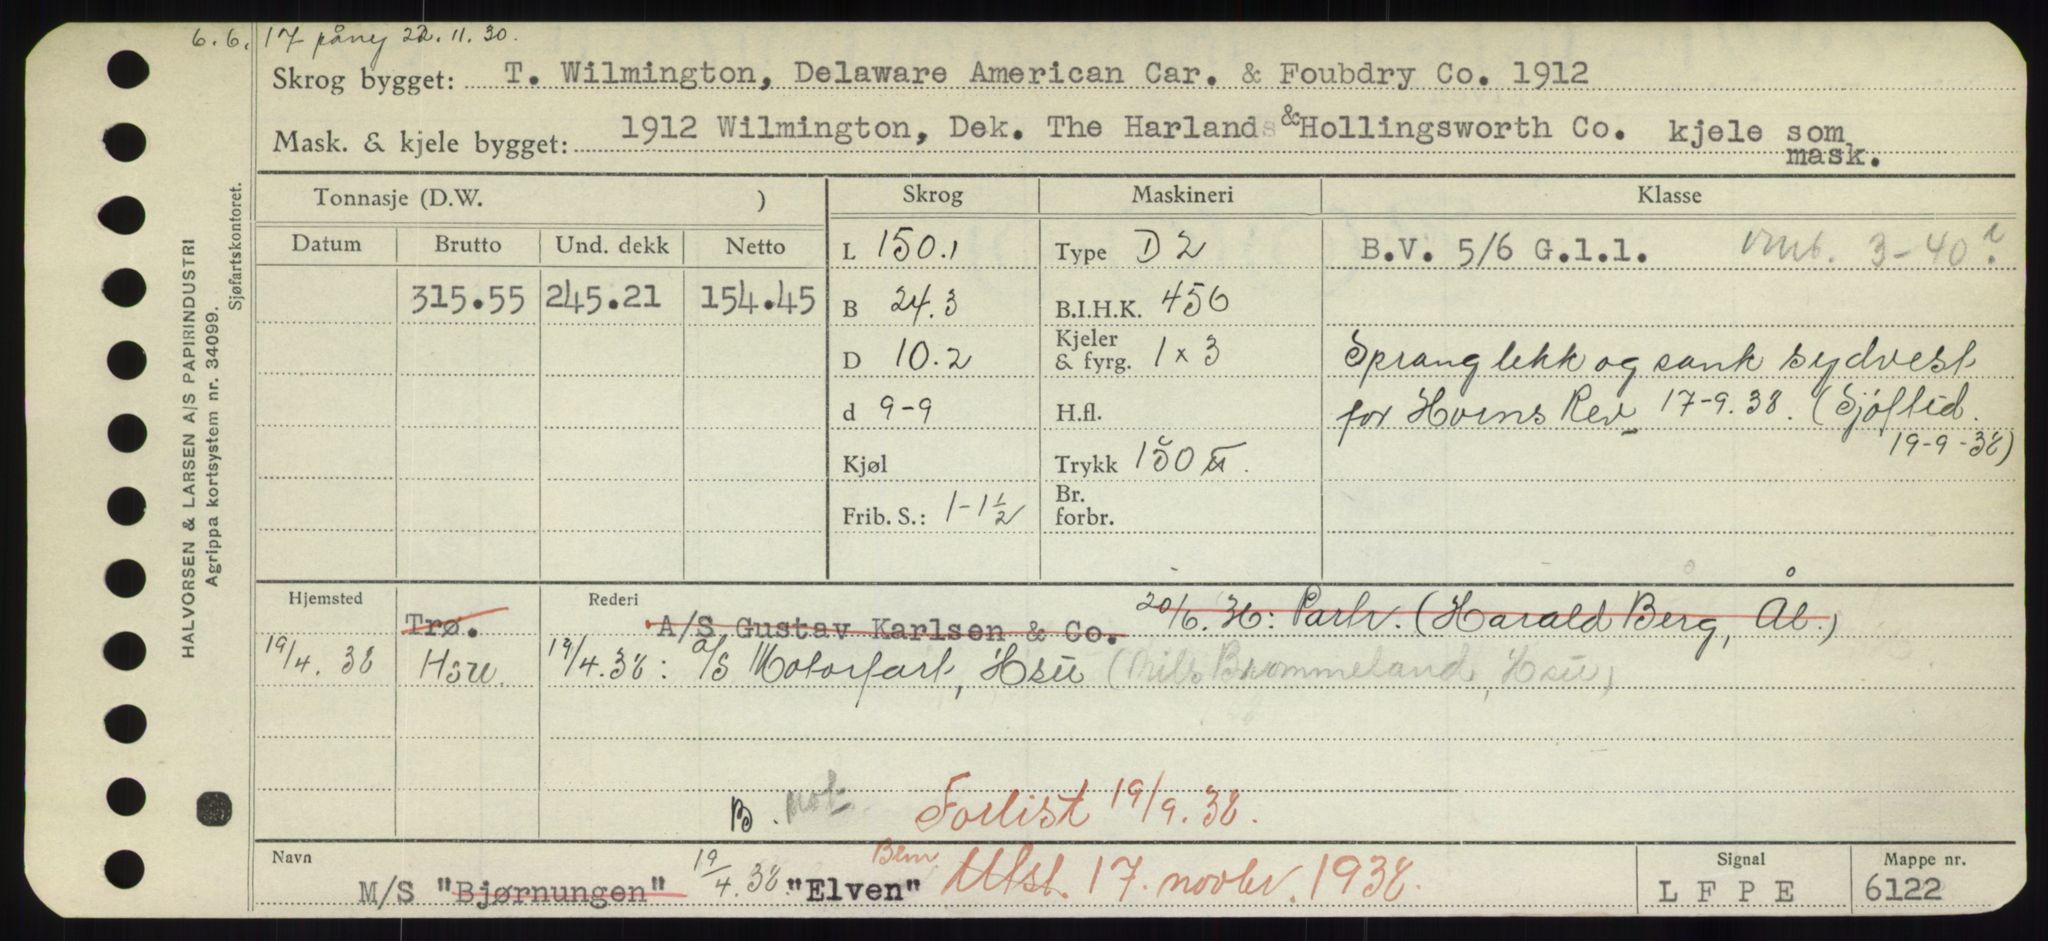 6.6. 17 påny 22.11.30.
Skrog bygget: T. Wilmington, Delaware American Car. & Foubdry Co. 1912
Mask. & kjele bygget: 1912 Wilmington, Dek. The Harlands & Hollingsworth Co. kjele som
mask.
HALVORSEN & LARSEN A/S PAPIRINDUSTRI
Agrippa kortsystem nr. 34099.
Sjøfartskontoret.
Tonnasje (D.W. ) Skrog Maskineri Klasse
Datum Brutto Und. dekk Netto L 150.1 Type D 2 B.V. 5/6 G.l.l. 3-40?
315.55 245.21 154.45 B 24.3 B.I.H.K. 450
D 10.2 Kjeler & fyrg. 1 x 3 Sprang lekk og sank sydvest
d 9-9 H.fl. for Horns Rev 17-9.38. (Sjøftid.
19-9-38)
Kjøl Trykk 150
Frib. S.: 1-1½ Br. forbr.
Hjemsted Trø. Rederi A/S Gustav Karlsen & Co. 20/6. H: Partr. (Harald Berg, Ål.)
19/4.38 Hsu. 19/4.38: A/S Motorfart, Hsu (Nils Brommeland, Hsu)
B. not. Forlist 19/9.38.
Navn M/S "Bjørnungen" 19/4.38. "Elven" Blm. Utst. 17. novbr. 1938.
Signal L F P E
Mappe nr. 6122